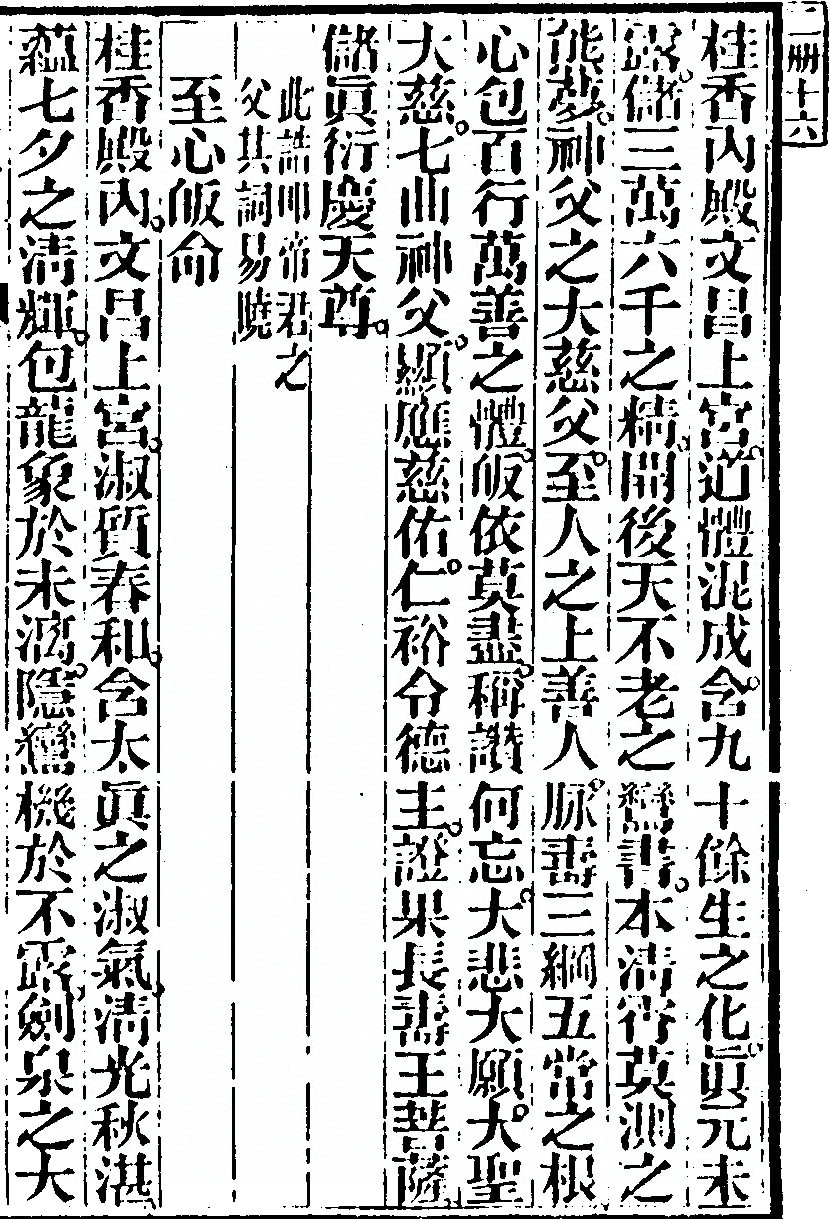 二册十六
桂香內殿文昌上宮。道體混成。含九十餘生之化。眞元未
露。儲三萬六千之精。開後天不老之鸞書。本清穹莫測之
能夢。神父之大慈父。至人之上善人。脈壽三綱五常之根。
心包百行萬善之體。皈依莫盡。稱讚何忘。大悲大願。大聖
大慈。七曲神父。顯應慈佑。仁裕令德主。證果長壽王菩薩。
儲眞衍慶天尊。
此誥卽帝君之
父其詞易曉
至心皈命
桂香殿內。文昌上宮。淑質春和。含太眞之淑氣。清光秋湛。
蘊七夕之清輝。包龍象於未漓。隱鸞機於不露。劍泉之大